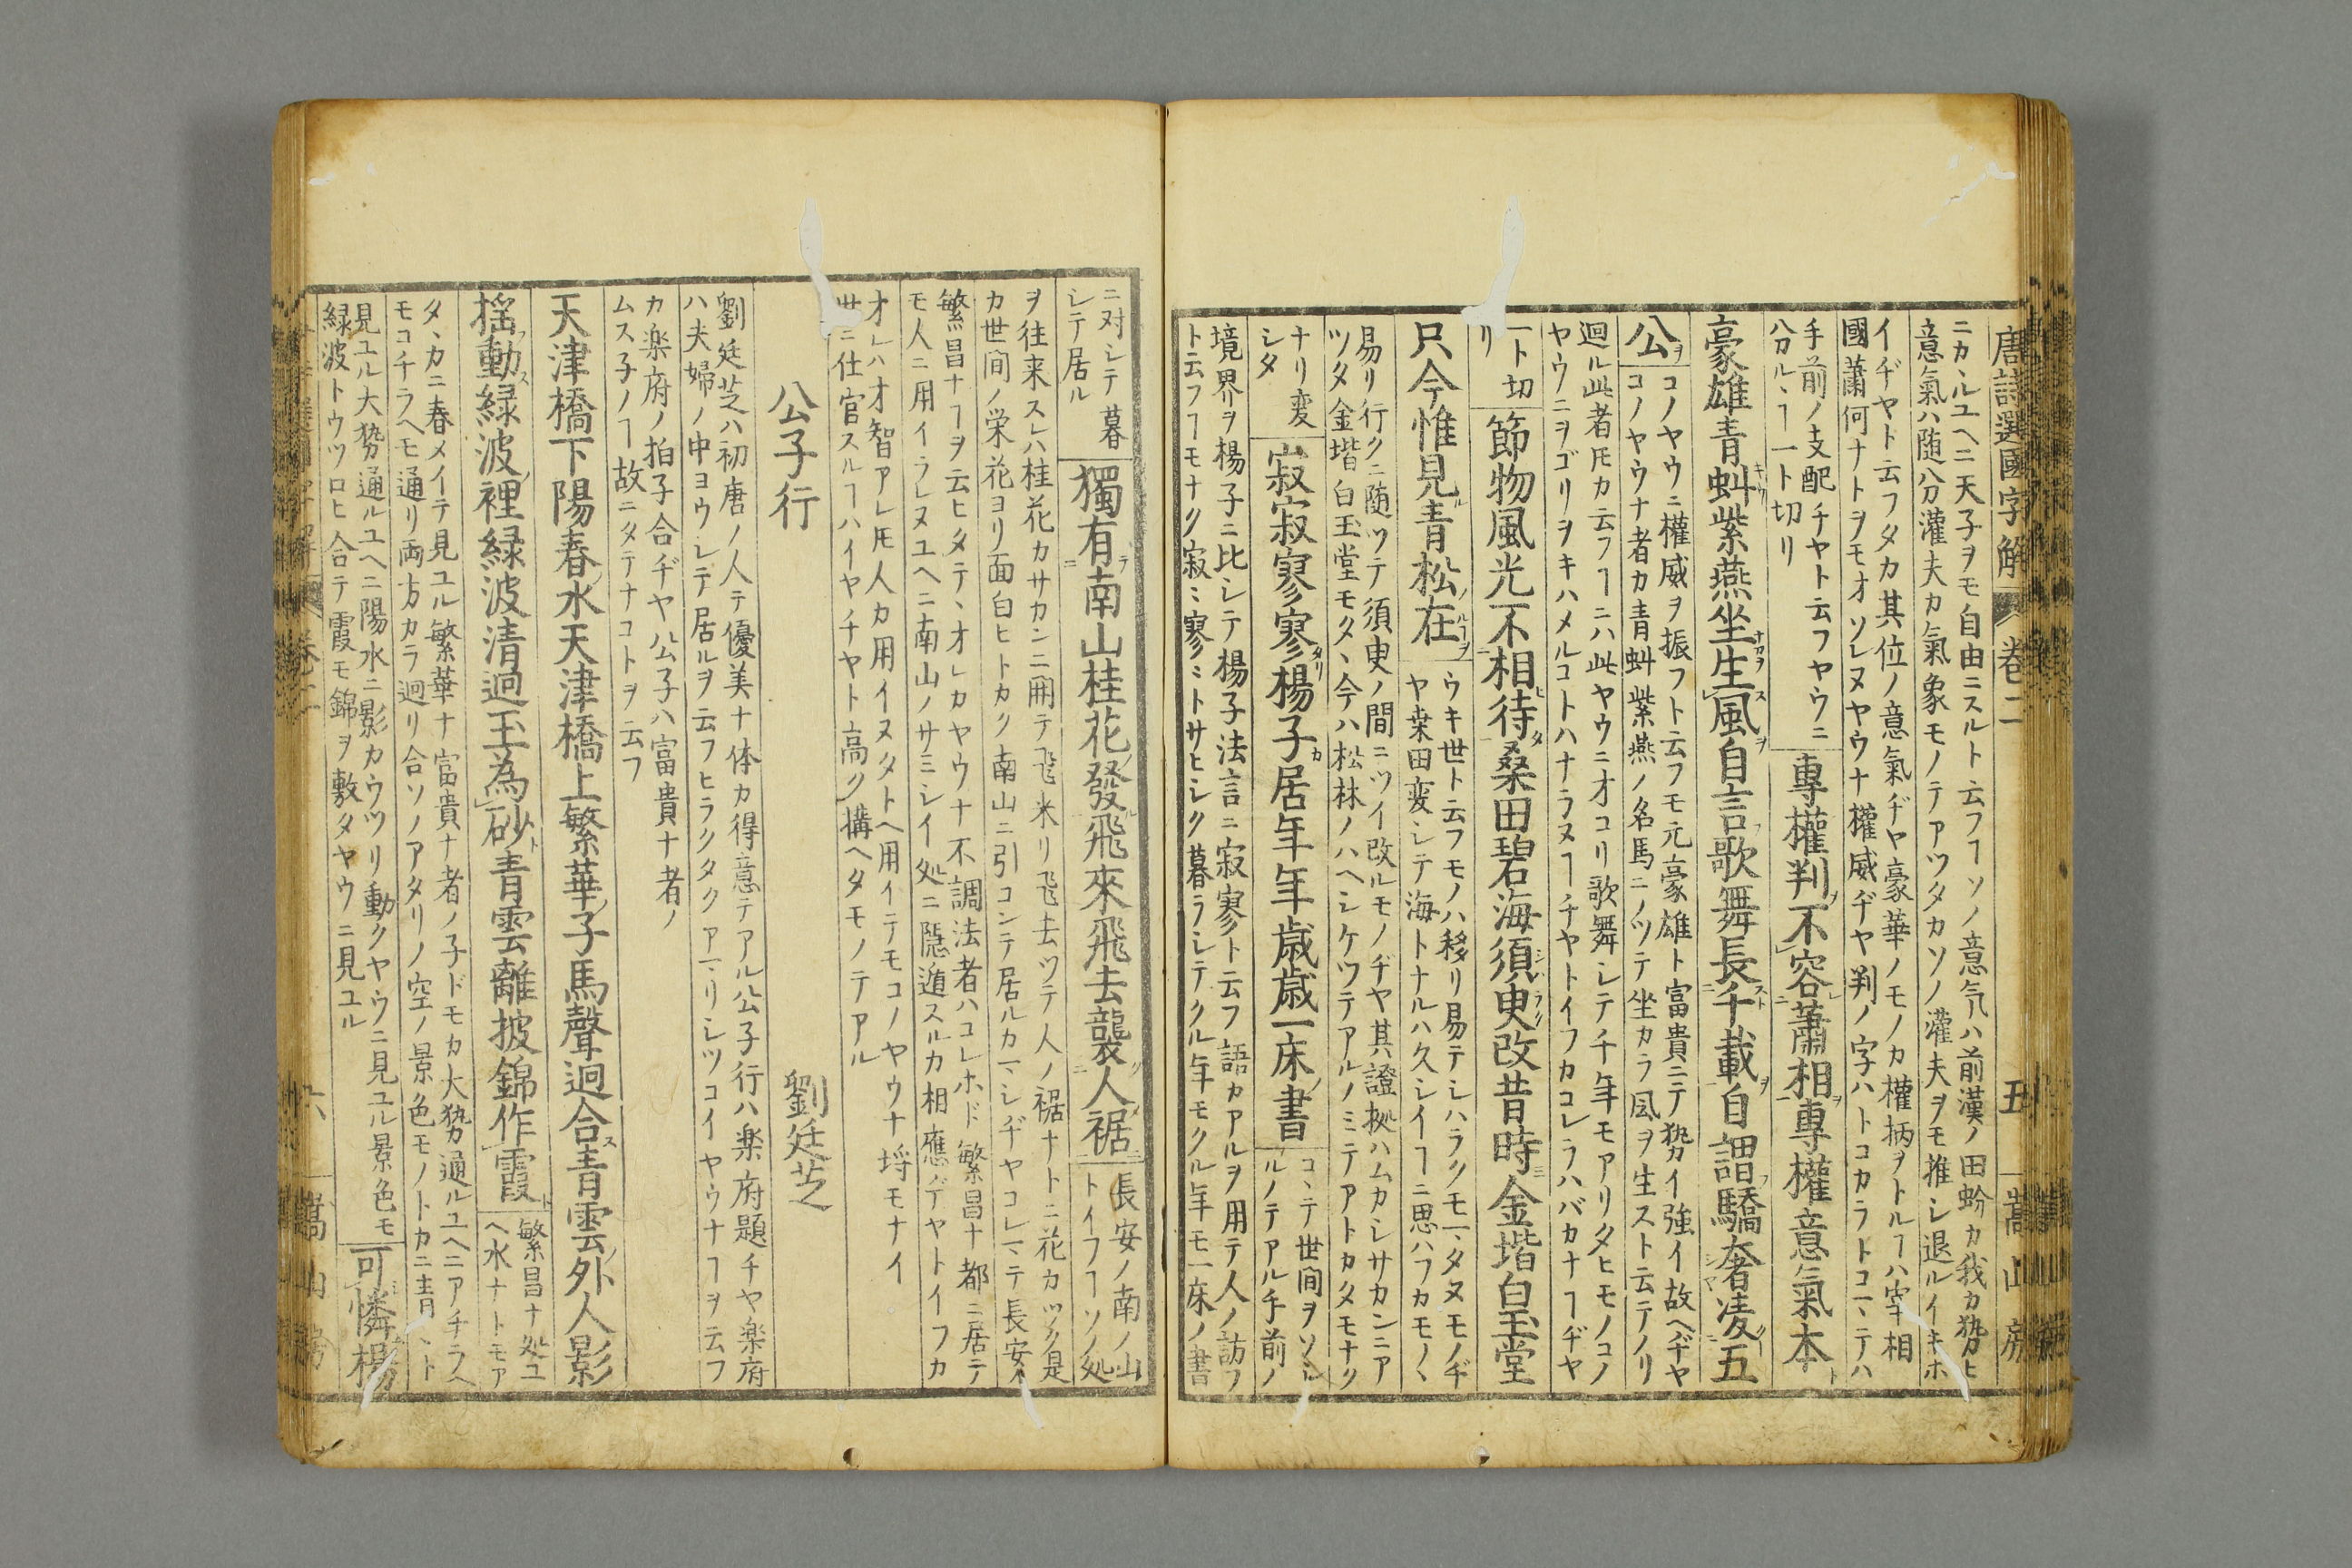 唐詩選國字解 卷二 五 嵩山房
ニカヽルユヘニ天子ヲモ自由ニスルト云フヿソノ意気ハ前漢ノ田蚡カ我カ勢ヒ
意氣ハ随分灌夫カ氣象モノテアツタカソノ灌夫ヲモ推シ退ルイキホ
イヂヤト云フタカ其位ノ意氣ヂヤ豪華ノモノカ權柄ヲトルヿハ宰相
國蕭何ナトヲモオソレヌヤウナ權威ヂヤ判ノ字ハトコカラトコヽテハ
手前ノ支配チヤト云フヤウニ
八分ルヽヿ一ト切リ
專權判不容蕭相專權意氣本
豪雄青虬紫燕坐生風自言歌舞長千載自謂驕奢凌五
公
コノヤウニ權威ヲ振フト云フモ元豪雄ト富貴ニテ勢イ強イ故ヘヂヤ
コノヤウナ者カ青虬紫燕ノ名馬ニノツテ坐カラ風ヲ生スト云テノリ
迴ル此者𪜈カ云フヿニハ此ヤウニオコリ歌舞シテ千年モアリタヒモノコノ
ヤウニヲゴリヲキハメルコトハナラヌヿチヤトイフカコレラハバカナヿヂヤ
一ト切
リ
節物風光不相待桑田碧海須臾改昔時金堦白玉堂
只今惟見青松在
ウキ世ト云フモノハ移リ易テシハラクモヿヽタヌモノヂ
ヤ桒田変シテ海トナルハ久シイヿニ思ハフカモノヽ
易リ行クニ随ツテ須臾ノ間ニツイ改ルモノヂヤ其證拠ハムカシサカンニア
ツタ金堦白玉堂モタヽ今ハ松林ノハヘシケツテアルノミテアトカタモナク
ナリ変
シタ
寂寂寥寥楊子居年年歳歳一床書
コヽテ世間ヲソシ
ルノテアル手前ノ
境界ヲ楊子ニ比シテ楊子法言ニ寂寥ト云フ語カアルヲ用テ人ノ訪フ
ト云フヿモナク寂ミ寥ミトサヒシク暮ラシテクル年モクル年モ一床ノ書
ニ対シテ暮
シテ居ル
獨有南山桂花發飛來飛去襲人裾
長安ノ南ノ山
トイフヿソノ処
ヲ往来スレハ桂花カサカンニ開テ飛来リ飛去ツテ人ノ裾ナトニ花カツク是
カ世間ノ栄花ヨリ面白ヒトカク南山ニ引コンテ居ルカヿヽシヂヤコレヿヽテ長安ノ
繁昌ナヿヲ云ヒタテヽオレカヤウナ不調法者ハコレホド繁昌ナ都ニ居テ
モ人ニ用イラレヌユヘニ南山ノサミシイ処ニ隠遁スルカ相應ヂヤトイフカ
オレハオ智アレ𪜈人カ用イヌタトヘ用イテモコノヤウナ埒モナイ
世ニ仕官スルヿハイヤチヤト高ク構ヘタモノテアル
公子行 劉廷芝
劉廷芝ハ初唐ノ人テ優美ナ体カ得意テアル公子行ハ楽府題チヤ楽府
ハ夫婦ノ中ヨウシテ居ルヲ云フヒラクタクアヿヽリシツコイヤウナヿヲ云フ
カ楽府ノ拍子合ヂヤ公子ハ富貴ナ者ノ
ムス子ノヿ故ニタテナコトヲ云フ
天津橋下陽春水天津橋上繁華子馬聲迴合青雲外人影
揺動緑波裡緑波清迥玉為砂青雲離披錦作霞
繁昌ナ処ユ
ヘ水ナトモア
タヽカニ春メイテ見ユル繁華ナ富貴ナ者ノ子ドモカ大勢通ルユヘニアチラヘ
モコチラヘモ通リ両方カラ迴リ合ソノアタリノ空ノ景色モノトカニ青ヽト
見ユル大勢通ルユヘニ陽水ニ影カウツリ動クヤウニ見ユル景色モ
緑波トウツロヒ合テ霞モ錦ヲ敷タヤウニ見ユル
可憐楊
六 嵩山房